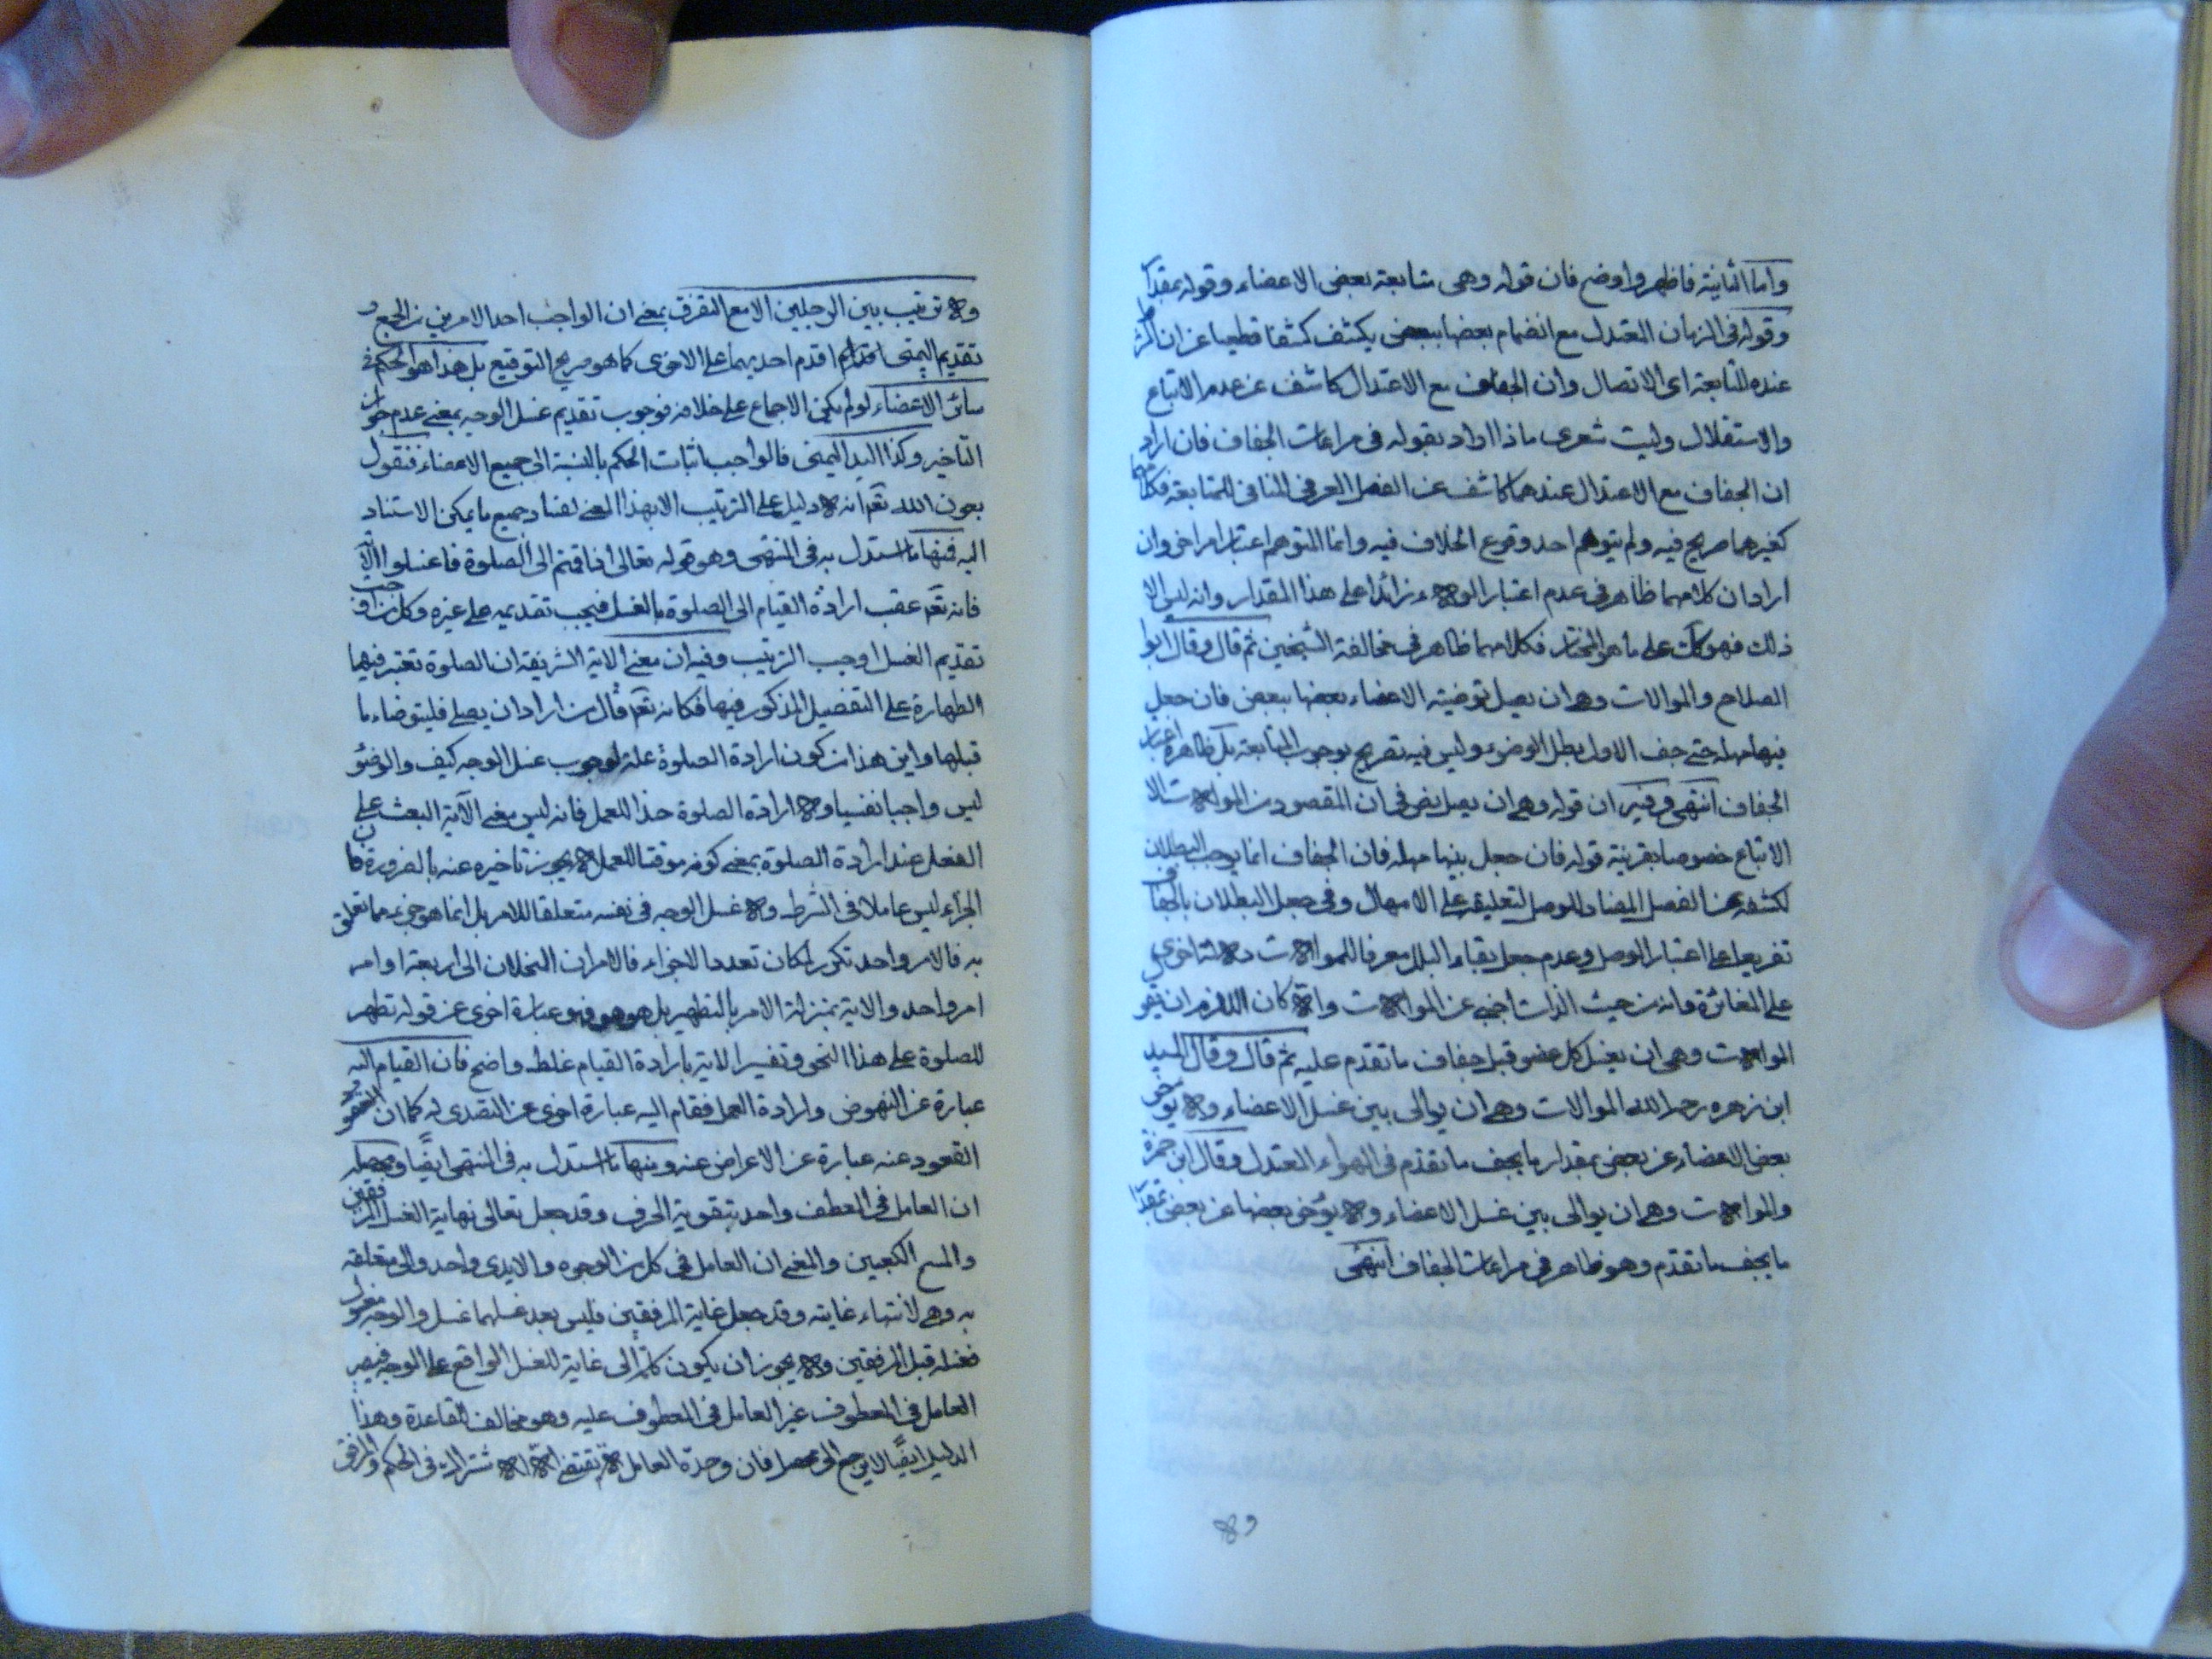 واما الثانية فاظهر واوضح فان قوله وهى متابعة بعض الاعضاء وقوله بمقدار
وقوله فى الزمان المعتدل مع انضمام بعضها ببعض يكشف كشفا قطعيا عن ان
عنده المتابعة اى الاتصال وان الجفاف مع الاعتدال كاشف عن عدم الاتباع
والاستقلال وليت شعرى ماذا اراد بقوله فى مراعات الجفاف فان اراد
ان الجفاف مع الاعتدال عندهما كاشف عن الفصل العرفى المنافى للمتابعة فكلامهما
كغيرهما صريح فيه ولم يتوهم احد وقوع الخلاف فيه وانما المتوهم اعتبار امر اخر وان
اراد ان كلامهما ظاهر فى عدم اعتبار الولاء زائدا على هذا المقدار وانه ليس الا
ذلك فهو كك على ما هو المختار فكلامهما ظاهر فى مخالفة الشيخين ثم قال وقال ابوا
الصلاح والموالات وهى ان يصل توضية الاعضاء بعضها ببعض فان جعل
بينها مهلة حتى جف الاول بطل الوضوء وليس فيه تصريح بوجوب المتابعة بل ظاهره اعتبار
الجفاف انتهى وفيه ان قوله وهى ان يصل نص فى ان المقصود من الموالات الا
الاتباع خصوصا بقرينة قوله فان جعل بينها مهلة فان الجفاف انما يوجب البطلان
لكشفه عن الفصل المضاد للوصل لتعليقه على الامهال وفى جعل البطلان بالجفاف
تفريعا على اعتبار الوصل وعدم جعل بقاء البلل معرفا للموالات دلالة اخرى
على المغائرة وانه من حيث الذات اجنبى عن الموالات والا كان اللازم ان يقو
الموالات وهى ان يغسل كل عضو قبل جفاف ما تقدم عليه ثم قال وقال السيد
ابن زهره رحمه الله الموالات وهى ان يوالى بين غسل الاعضاء ولا يؤخر
بعض الاعضاء عن بعض بمقدار ما يجف ما تقدم فى الهواء المعتدل وقال ابن حمزة
والموالات وهى ان يوالى بين غسل الاعضاء ولا يؤخر بعضها عن بعض بمقدار
ما يجف ما تقدم وهو ظاهر فى مراعات الجفاف انتهى
ولا
ولا ترتيب بين الرجلين الا مع التفرق بمعنى ان الواجب احد الامرين من الجمع و
تقديم اليمنى اذا قدم احديهما على الاخرى كما هو صريح التوقيع بل هذا هو الحكم فى
سائر الاعضاء لو لم يكن الاجماع على خلافه فوجوب تقديم غسل الوجه بمعنى عدم جواز
التأخير وكذا اليد اليمنى فالواجب اثبات الحكم بالنسبة الى جميع الاعضاء فنقول
بعون الله تعه انه لا دليل على الترتيب الا بهذا المعنى لفساد جميع ما يمكن الاستناد
اليه فمنها ما استدل به فى المنتهى وهو قوله تعالى اذا قمتم الى الصلوة فاغسلوا الاية
فانه تعه عقب ارادة القيام الى الصلوة بالغسل فيجب تقديمه على غيره وكل من اوجب
تقديم الغسل اوجب الترتيب وفيه ان معنى الاية الشريفة ان الصلوة تعتبر فيها
الطهارة على التفصيل المذكور فيها فكانه تعه قال من اراد ان يصلى فليتوضاء ما
قبلها واين هذا من كون ارادة الصلوة علة لوجوب غسل الوجه كيف والوضؤ
ليس واجبا نفسيا ولا ارادة الصلوة حدا للعمل فانه ليس معنى الآية البعث على
الفعل عند ارادة الصلوة بمعنى كونه موقتا للعمل لا يجوز تاخيره عنه بالضرورة فان
الجزاء ليس عاملا فى الشرط ولا غسل الوجه فى نفسه متعلقا للامر بل انما هو جزء مما تعلق
به فالامر واحد تكرر لمكان تعدد الاجزاء فالامران المنحلان الى اربعة اوامر
امر واحد والاية بمنزلة الامر بالتطهير بل هو هو فهو عبارة اخرى عن قوله تطهر
للصلوة على هذا النحو وتفسير الاية بارادة القيام غلط واضح فان القيام اليه
عبارة عن النهوض وارادة العمل فقام اليه عبارة اخرى عن التصدى له كما ان
القعود عنه عبارة عن الاعراض عنه ومنها ما استدل به فى المنتهى ايضًا ومحصله
ان العامل فى العطف واحد بتقوية الحرف وقد جعل تعالى نهاية الغسل المرفقين
والمسح الكعبين والمعنى ان العامل فى كل من الوجوه والايدى واحد والى متعلقة
به وهى لانتهاء غايته وقد جعل غاية المرفقين فليس بعد غسلهما غسل والوجه مغسول
فغسله قبل المرفقين ولا يجوز ان يكون كلمة الى غاية للغسل الواقع على الوجه فيصير
العامل فى المعطوف غير العامل فى المعطوف عليه وهو مخالف للقاعدة وهذا
الدليل ايضًا لا يرجع الى محصل فان وحدة العامل لا تقتضى الا الاشتراك فى الحكم والمرافق